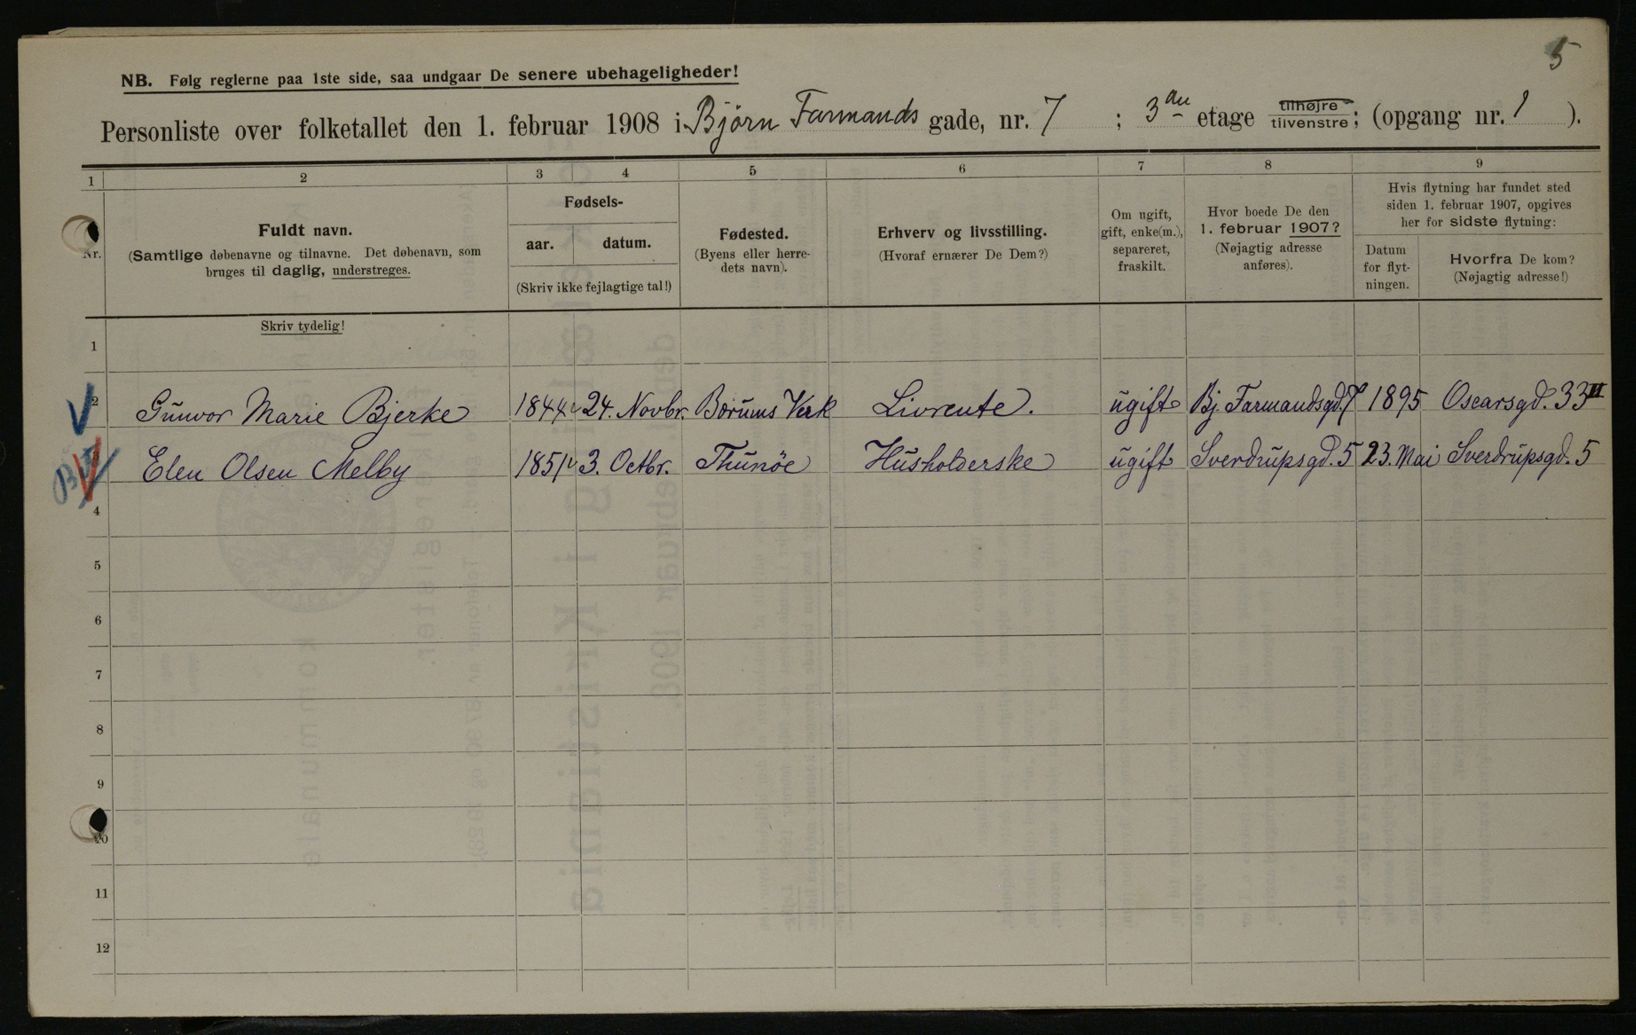 5
NB. Følg reglerne paa 1ste side, saa undgaar De senere ubehageligheder!
Personliste over folketallet den 1. februar 1908 i Bjørn Farmands gade, nr. 7 ; 3die etage tilhøjre tilvenstre; (opgang nr. 1 ).
1 2 3 4 5 6 7 8 9
Nr.
Fuldt navn.
(Samtlige døbenavne og tilnavne. Det døbenavn, som
bruges til daglig, understreges.
Fødsels-
aar. datum.
(Skriv ikke fejlagtige tal!)
Fødested.
(Byens eller herre-
dets navn).
Erhverv og livsstilling.
(Hvoraf ernærer De Dem?)
Om ugift,
gift, enke(m.),
separeret,
fraskilt.
Hvor boede De den
1. februar 1907?
(Nøjagtig adresse
anføres).
Hvis flytning har fundet sted
siden 1. februar 1907, opgives
her for sidste flytning:
Datum
for flyt-
ningen.
Hvorfra De kom?
(Nøjagtig adresse!)
Skriv tydelig!
1
2 Gunvor Marie Bjerke 1844 24. Novbr. Bærums Verk Livrente. ugift Bj. Farmandsgd. 7 1895 Oscarsgd. 33 II
Elen Olsen Melby 1851 3. Octbr. Thunöe Husholderske ugift Sverdrupsgd. 5 23. Mai Sverdrupsgd. 5
4
5
6
7
8
9
10
11
12